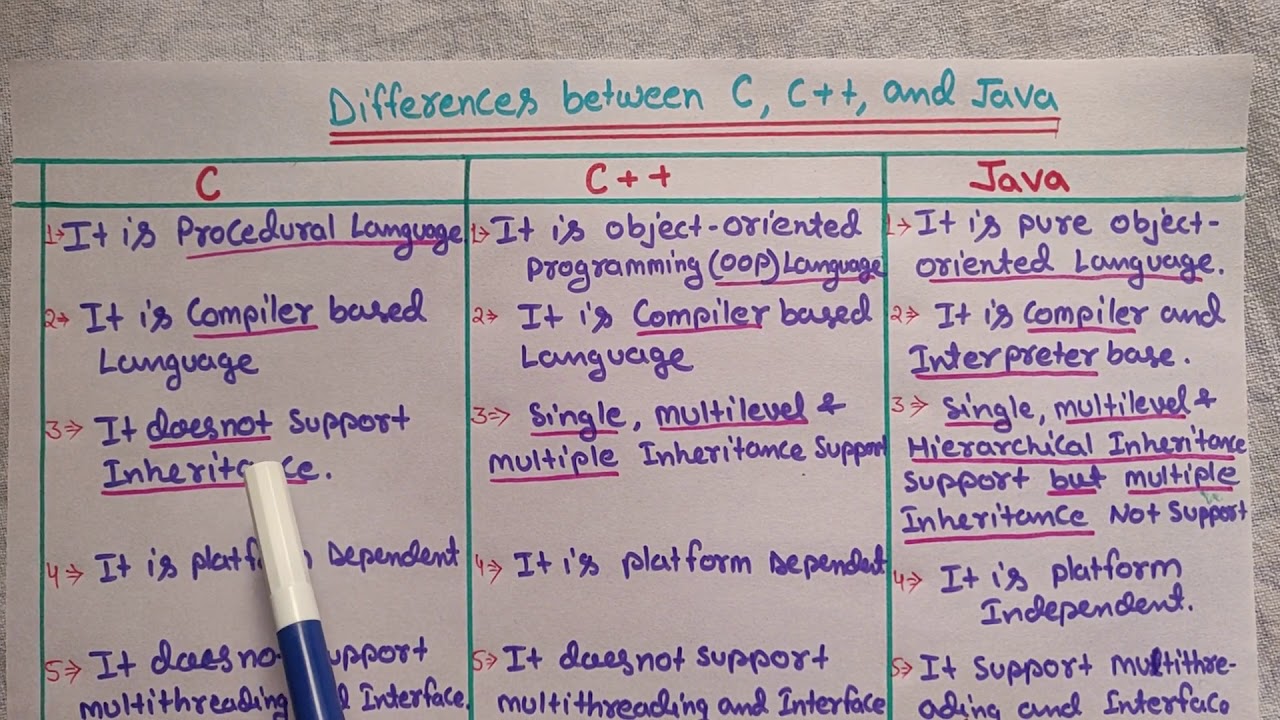 Differences between C, C++, and Java
C
1→ It is Procedural Language
2→ It is Compiler based
Language
3⇒ It doesnot Support
Inheritance.
4⇒ It is Dependent
5⇒ It
multithreading Interface.
C++
1→ It is object-oriented
Programming (OOP) Language
2⇒ It is Compiler based
Language
3⇒ Single, multilevel &
multiple Inheritance Support
4⇒ It is platform Dependent
5⇒ It doesnot support
multithreading and Interface
Java
1→ It is pure object-
oriented Language.
2⇒ It is Compiler and
Interpreter base.
3⇒ Single, multilevel &
Hierarchical Inheritance
Support but multiple
Inheritance Not Support
4⇒ It is platform
Independent.
5⇒ It Support multithre-
ading and Interface